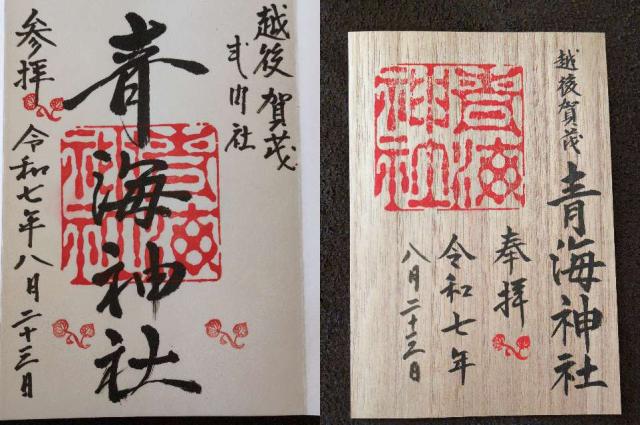 越後賀茂
式内社
青海神社
参拝
令和七年八月二十三日
青海神社
越後賀茂
青海神社
奉拝
令和七年
八月二十三日
青海神社